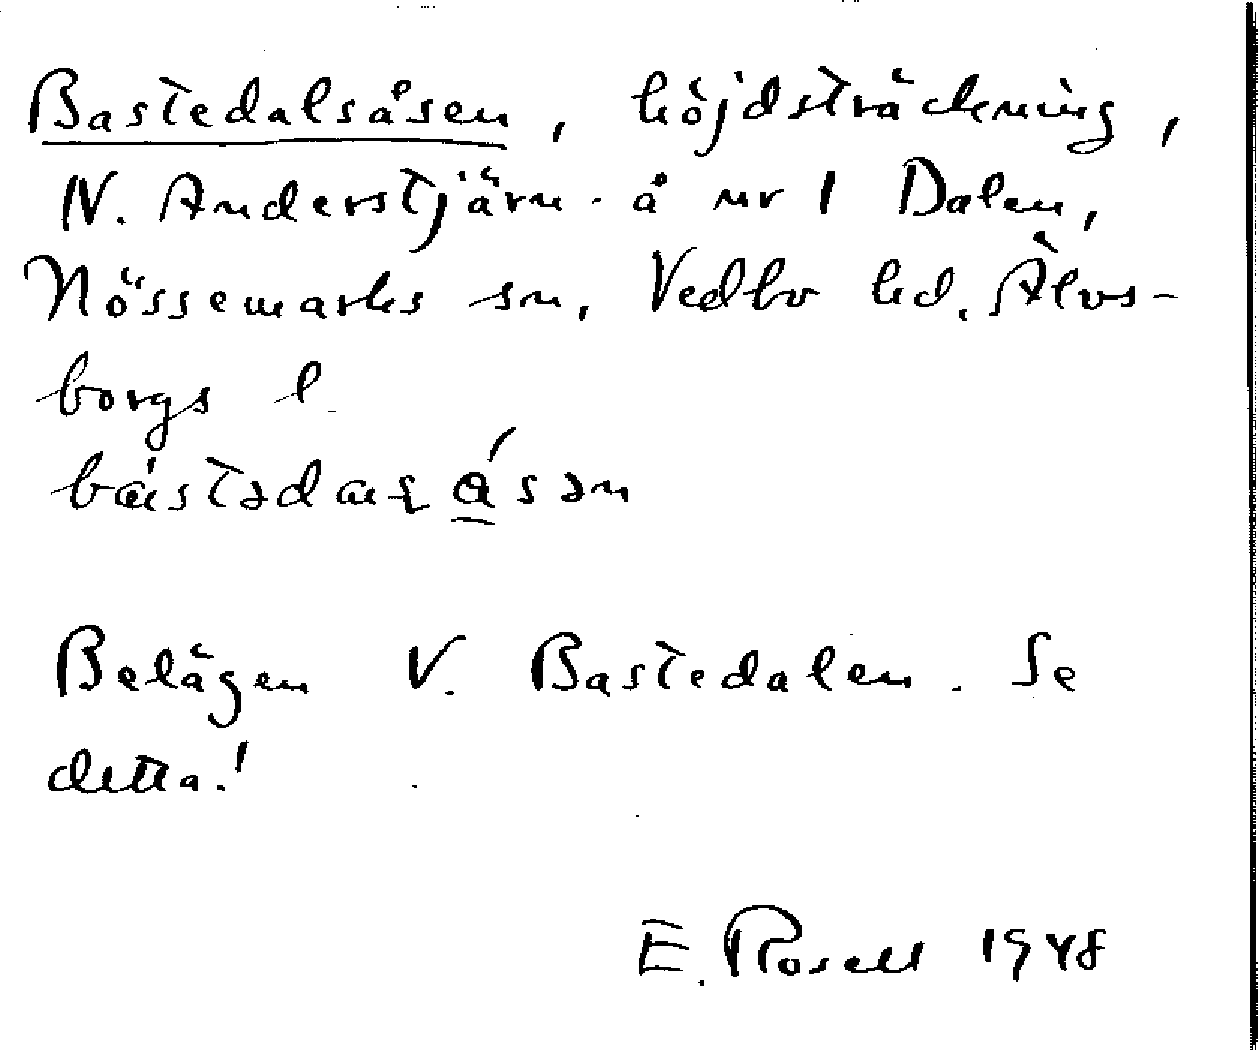 Bastedalsåsen, höjdsträckning,
N. Anderstjärn. å nr 1 Dalen,
Nössemarks sn, Vedbo hd. Älvs-
borgs l.

Belägen V. Bastedalen. Se
detta!
E. Rosell 1948